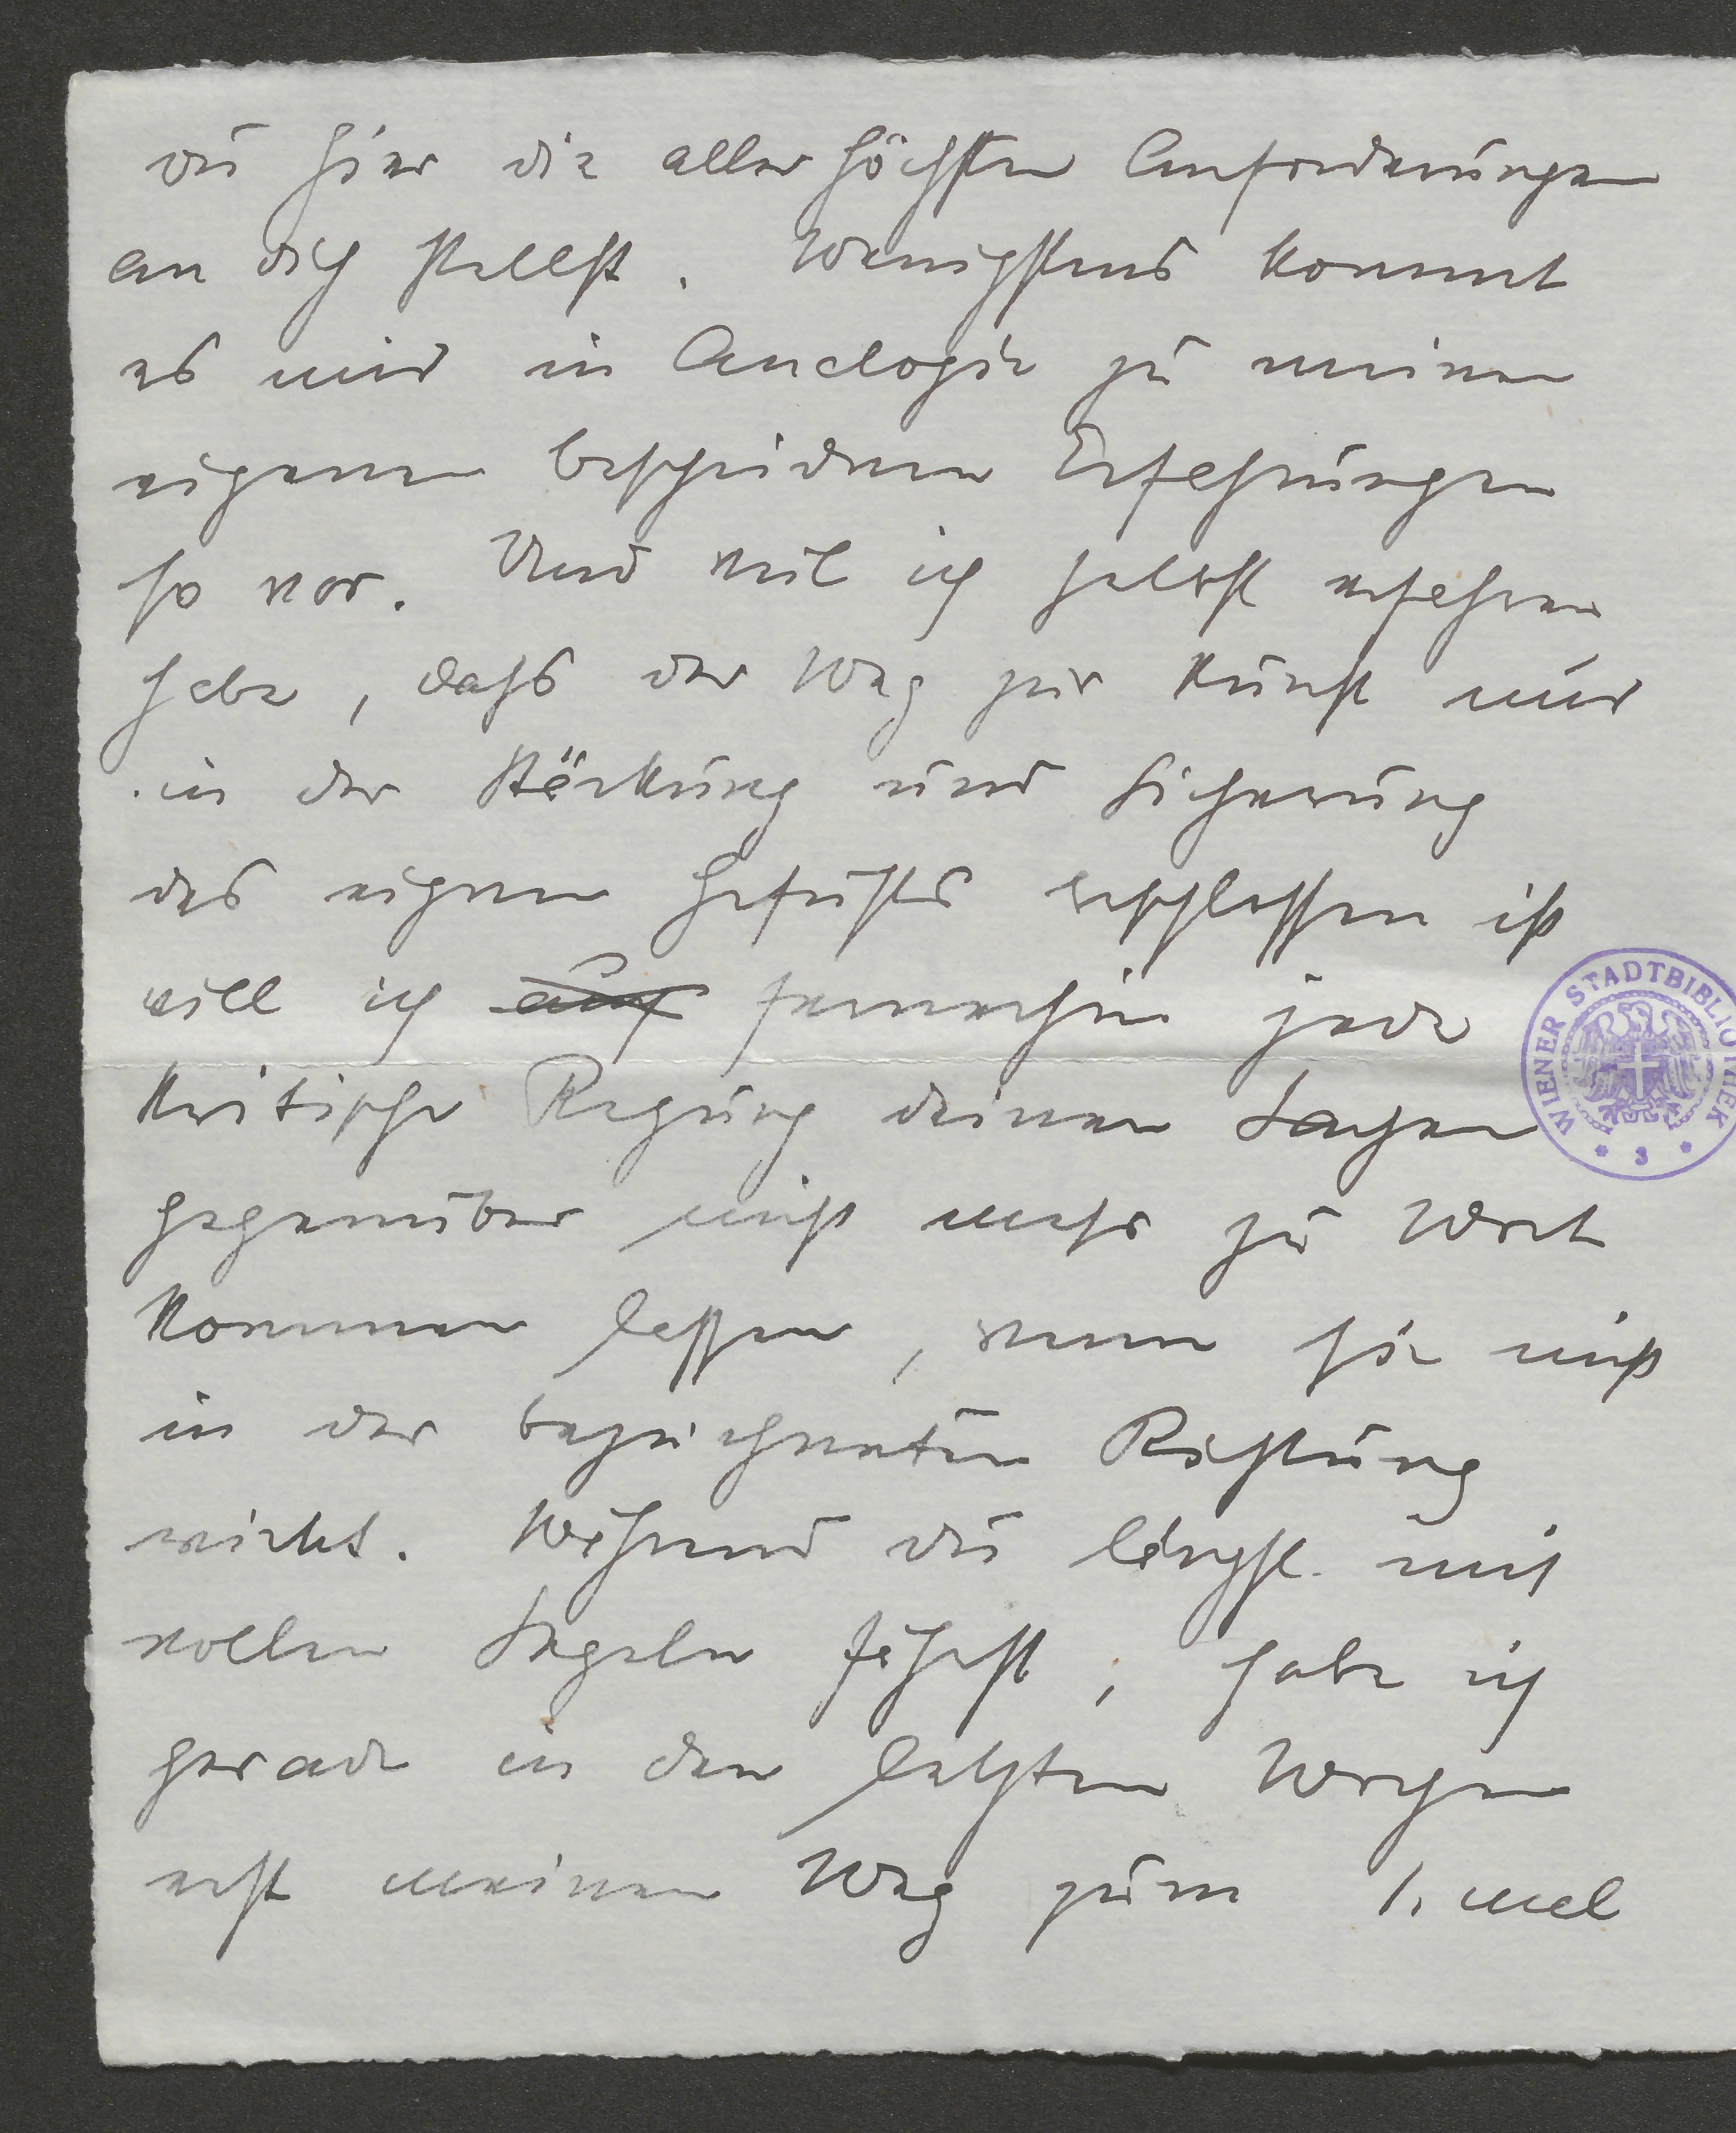 du hier die allerhöchsten Anforderungen
an dich stellst. Wenigstens kommt
es mir in Analogie zu meinen
eigenen bescheidenen Erfahrungen
so vor. Und weil ich selbst erfahren
habe, dass der Weg zur Kunst nur
in der Stärkung und Sicherung
des eigenen Gefühls beschlossen ist
will ich auf fernerhin jede
kritische Regung deinen Sachen
gegenüber nicht mehr zu Wort
kommen lassen, wenn sie nicht
in der bezeichneten Richtung
wirkt. Während du längst mit
vollen Segeln fährst, habe ich
gerade in den letzten Wochen
erst meinen Weg zum 1. mal
WIENER STADTBIBLIOTHEK
* 3 *